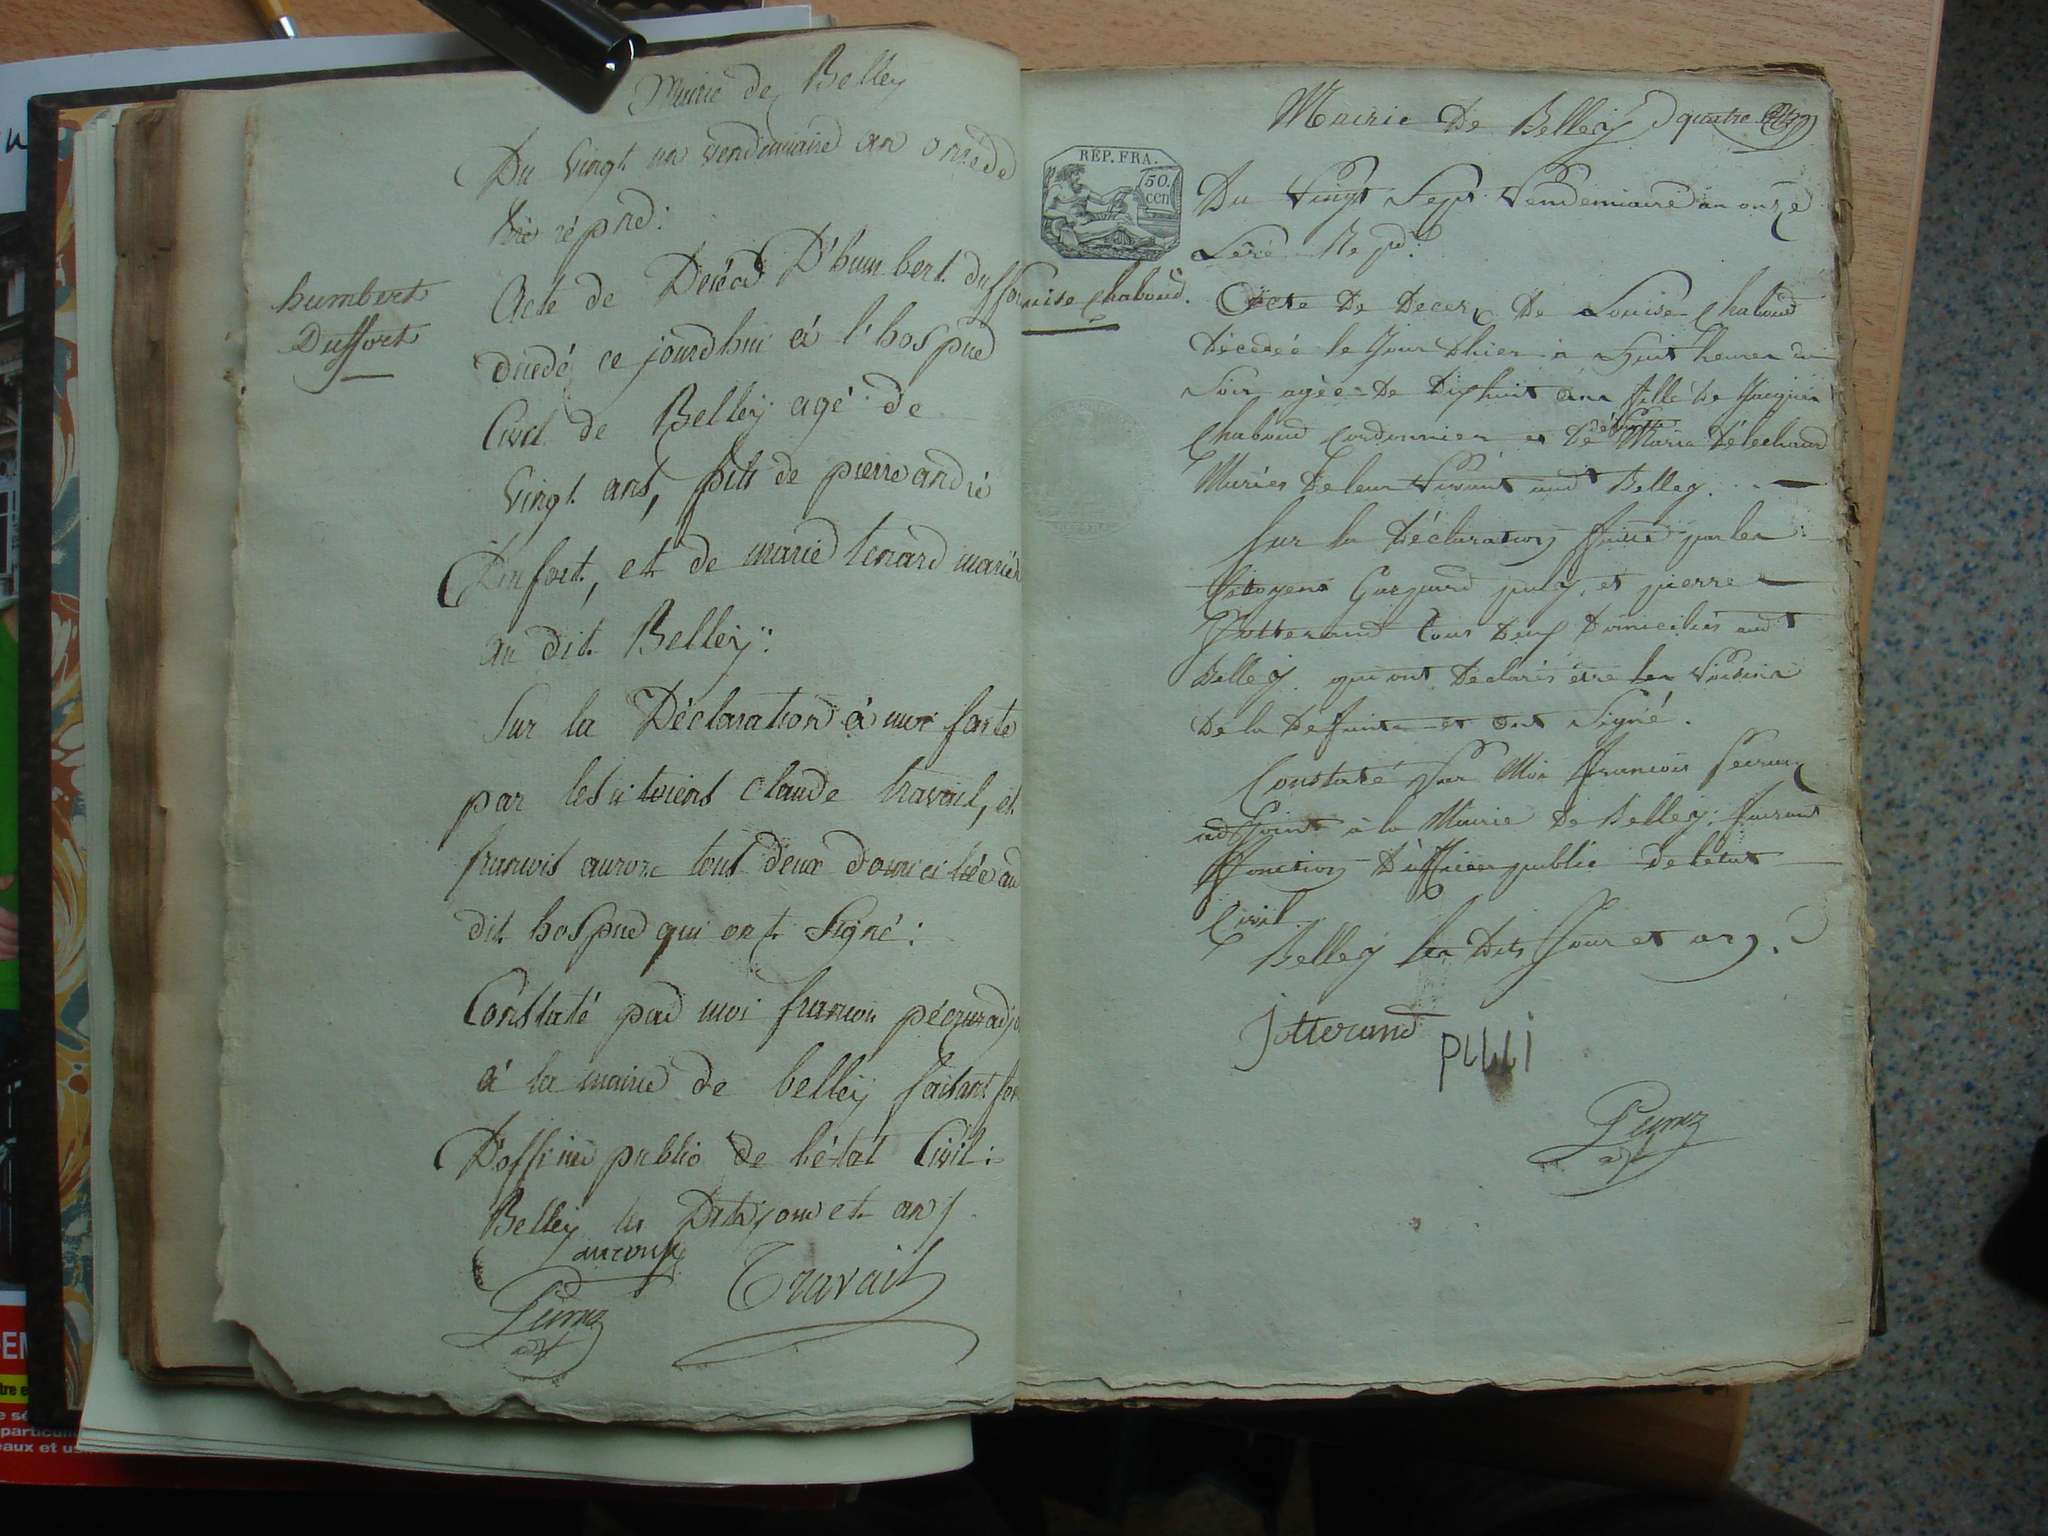 Mairie de Belley
Du vingt un vendémiaire an onze de
l'ère répue:
humbert
Duffort
Acte de Décéd D'humbert duff
décedé ce jourdhui à l'hospice
Civil de Belleÿ agé de
vingt ans, fils de pierre andré
Duffort, et de marie tenard mariés
au dit Belleÿ:
Sur la Déclaration à moi faite
par les citoiens Claude travail, et
francois aurore tous deux domiciliés au
dit hospice qui ont signé:
Constaté par moi francois pécruz adj
à la mairie de belleÿ faisant fon
D'officier public de l'état Civil:
Belleÿ les Dits jour et an
Travail
Mairie De Belley quatre
RÉP. FRA.
50.
cen
Du Vingt Sept Vendemiaire an onze
L'ere Rep.
Louise Chaboud.
Acte De Decès De Louise Chaboud
Décédée le Jour D'hier à huit heures du
Soir agée De Dixhuit ans fille De Jacques
Chaboud Cordonnier et De défunte Marie
Mariés De leur Vivant audt Belley.
Sur la Déclaration faite par les
Citoyens Gaspard puly, et pierre
Jotterand tous Deux Domiciliés audt
Belley qui ont Déclarés être les Voisins
De la Defunte et ont Signé.
Constaté Par Moi François Pecruz
adjoint à la Mairie De Belley faisant
fonction D'officier public de l'état
Civil.
Belley les Dits Jour et an.
Jotterand
pulli
Pecruz
adjt